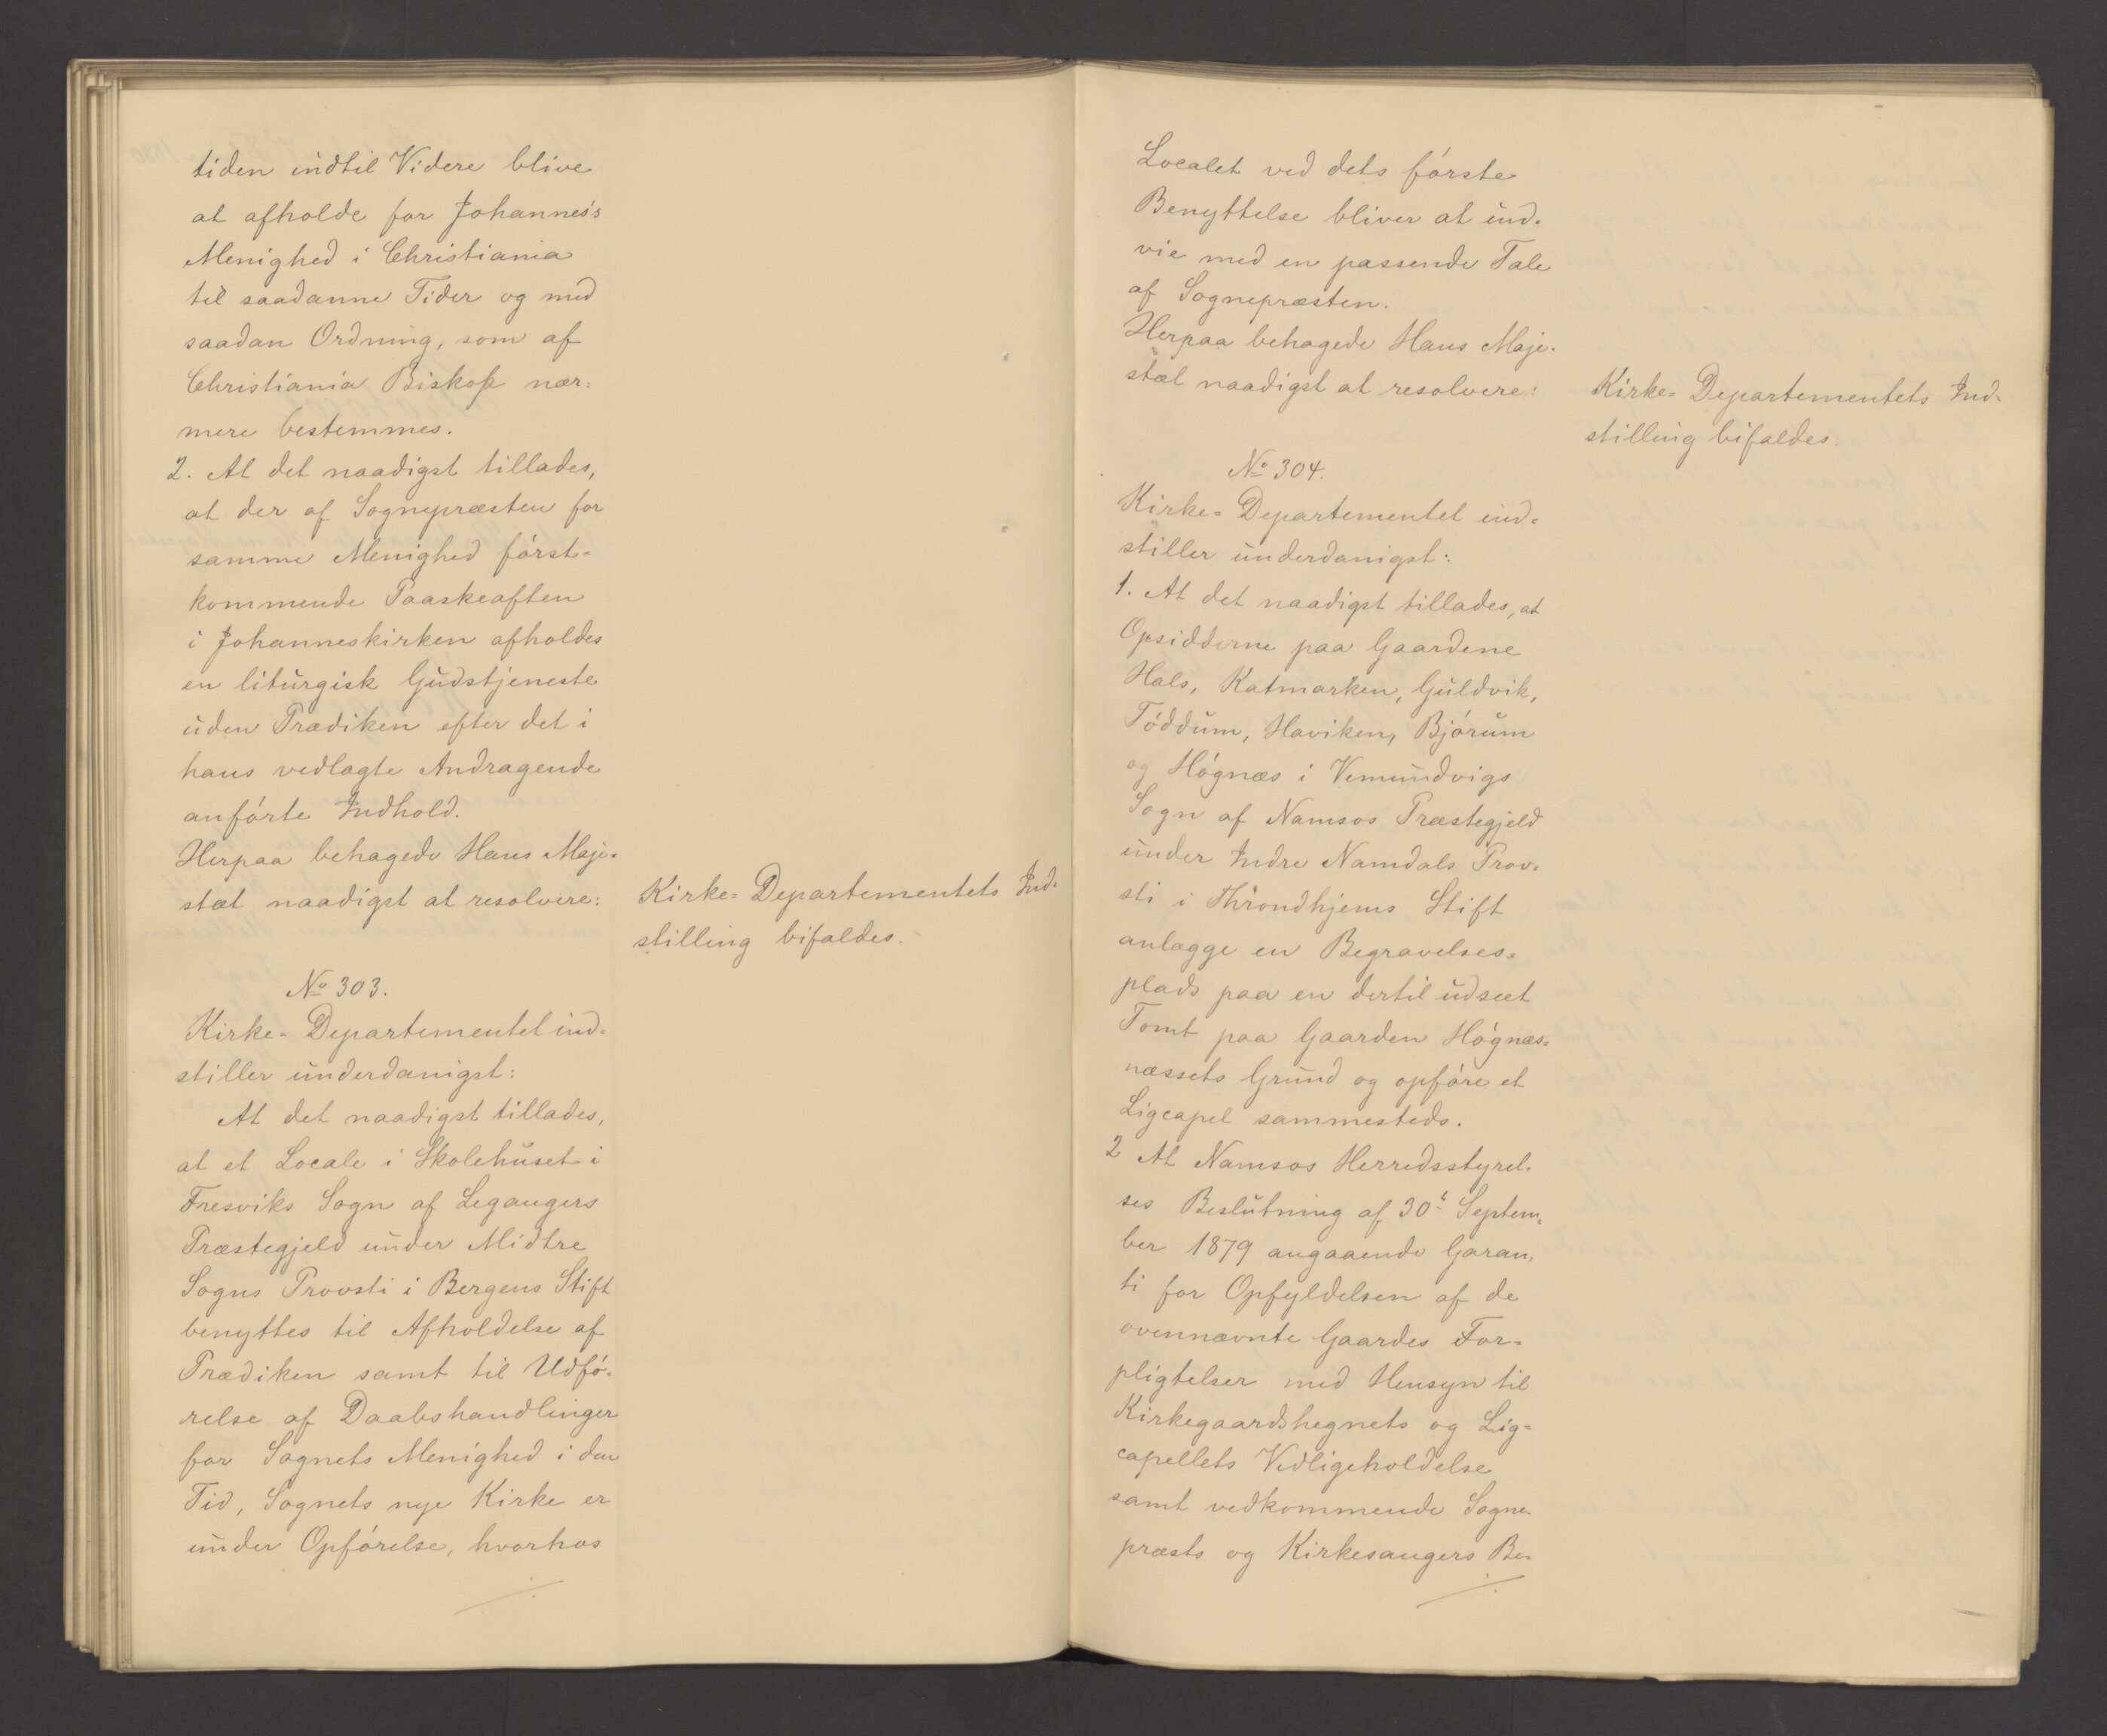 tiden indtil Videre blive
at afholde for Johannes's
Menighed i Christiania
til saadanne Tider og med
saadan Ordning, som af
Christiania Biskop nær=
mere bestemmes.
2. At det naadigst tillades,
at der af Sognepræsten for
samme Menighed først=
kommende Paaskeaften
i Johanneskirken afholdes
en liturgisk Gudstjeneste
uden Prædiken efter det i
hans vedlagte Andragende
anførte Indhold.
Herpaa behagede Hans Maje=
stæt naadigst at resolvere:
Kirke=Departementets Ind=
stilling bifaldes.
No 303.
Kirke=Departementet ind=
stiller underdanigst:
At det naadigst tillades,
at et Locale i Skolehuset i
Fresviks Sogn af Legangers
Præstegjeld under Midtre
Sogns Provsti i Bergens Stift
benyttes til Afholdelse af
Prædiken samt til Udfø=
relse af Daabshandlinger
for Sognets Menighed i den
Tid, Sognets nye Kirke er
under Opførelse, hvorhos
Localet ved dets første
Benyttelse bliver at ind=
vie med en passende Tale
af Sognepræsten.
Herpaa behagede Hans Maje=
stæt naadigst at resolvere:
Kirke=Departementets Ind=
stilling bifaldes.
No 304.
Kirke=Departementet ind=
stiller underdanigst:
1. At det naadigst tillades, at
Opsidderne paa Gaardene
Hals, Katmarken, Guldvik,
Tøddum, Haviken, Bjørum
og Høgnæs i Vemundvigs
Sogn af Namsos Præstegjeld
under Indre Namdals Prov=
sti i Throndhjems Stift
anlægge en Begravelses=
plads paa en dertil udseet
Tomt paa Gaarden Høgnæs=
næssets Grund og opføre et
Ligcapel sammesteds.
2 At Namsos Herredsstyrel=
ses Beslutning af 30t Septem=
ber 1879 angaaende Garan=
ti for Opfyldelsen af de
ovennævnte Gaardes For=
pligtelser med Hensyn til
Kirkegaardshegnets og Lig=
capellets Vedligeholdelse
samt vedkommende Sogne
præsts og Kirkesangers Be=